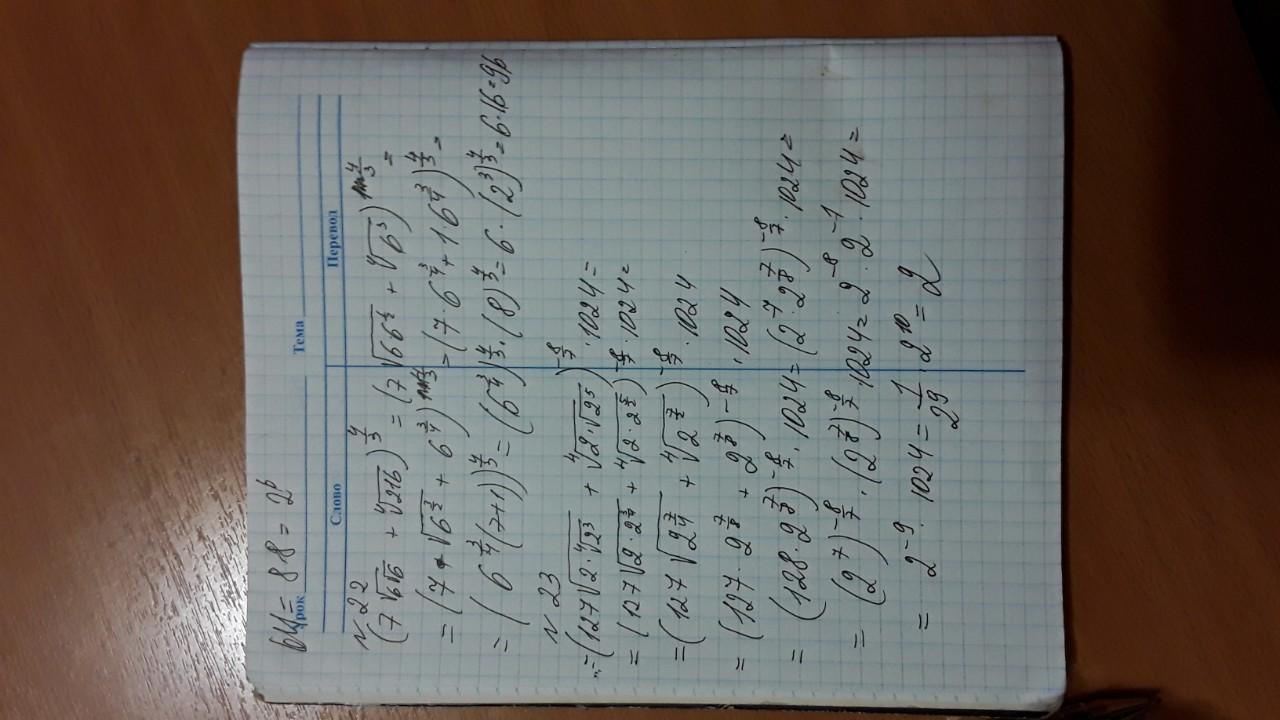 64 = 8·8 = 2^6
Урок Тема
Слово Перевод
N 22
(7√(6√6) + ∜216)^(4/3) = (7√(66^(1/2)) + ∜(6^3))^(4/3) =
= (7·√(6^(3/2)) + 6^(3/4))^(4/3) = (7·6^(3/4) + 1·6^(3/4))^(4/3) =
= (6^(3/4)(7+1))^(4/3) = (6^(3/4))^(4/3)·(8)^(4/3) = 6·(2^3)^(4/3) = 6·16 = 96
N 23
= (127√(2·∜(2^3)) + ∜(2·√(2^5)))^(-8/7)·1024 =
= (127√(2·2^(3/4)) + ∜(2·2^(5/2)))^(-8/7)·1024 =
= (127√(2^(7/4)) + ∜(2^(7/2)))^(-8/7)·1024
= (127·2^(7/8) + 2^(7/8))^(-8/7)·1024
= (128·2^(7/8))^(-8/7)·1024 = (2^7·2^(7/8))^(-8/7)·1024 =
= (2^7)^(-8/7)·(2^(7/8))^(-8/7)·1024 = 2^(-8)·2^(-1)·1024 =
= 2^(-9)·1024 = 1/2^9·2^10 = 2